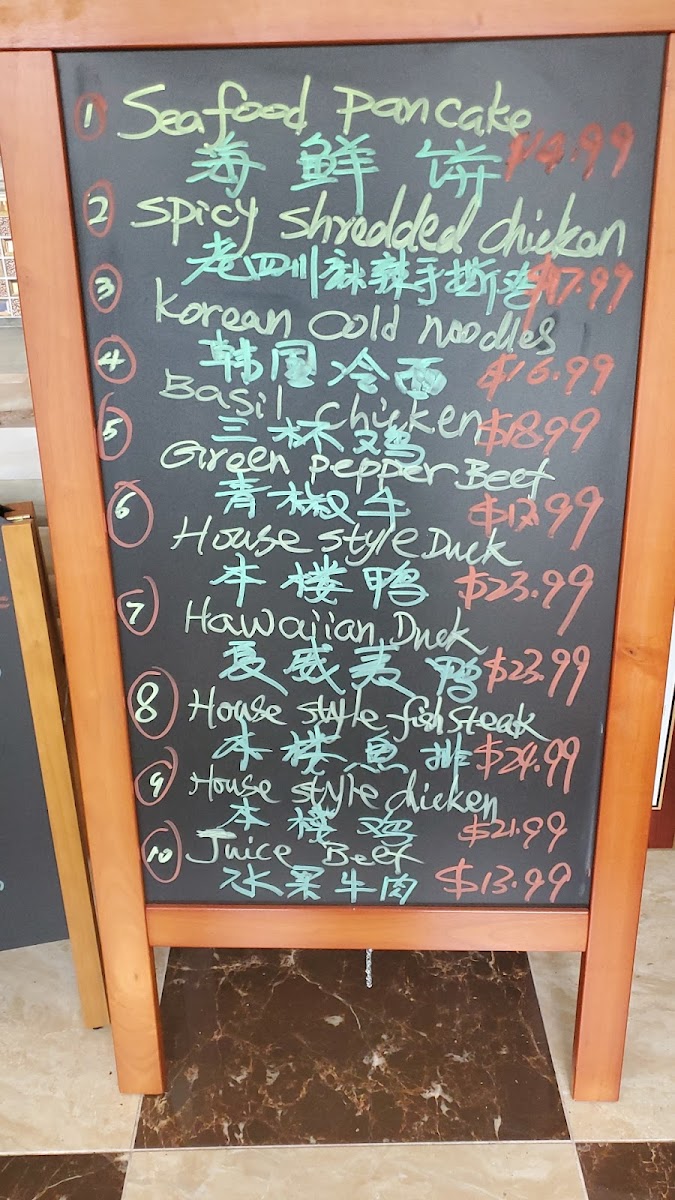 1 Seafood Pancake
海鲜饼 $14.99
2 Spicy shredded chicken
老四川麻辣手撕鸡 $17.99
3 Korean Cold noodles
4 韩国冷面 $16.99
Basil chicken
5 三杯鸡 $18.99
Green Pepper Beef
6 青椒牛 $17.99
House style Duck
本楼鸭 $23.99
7 Hawaiian Duck
夏威夷鸭 $23.99
8 House style fish steak
本楼鱼排 $24.99
9 House style chicken
本楼鸡 $21.99
10 Juice Beef
水果牛肉 $13.99